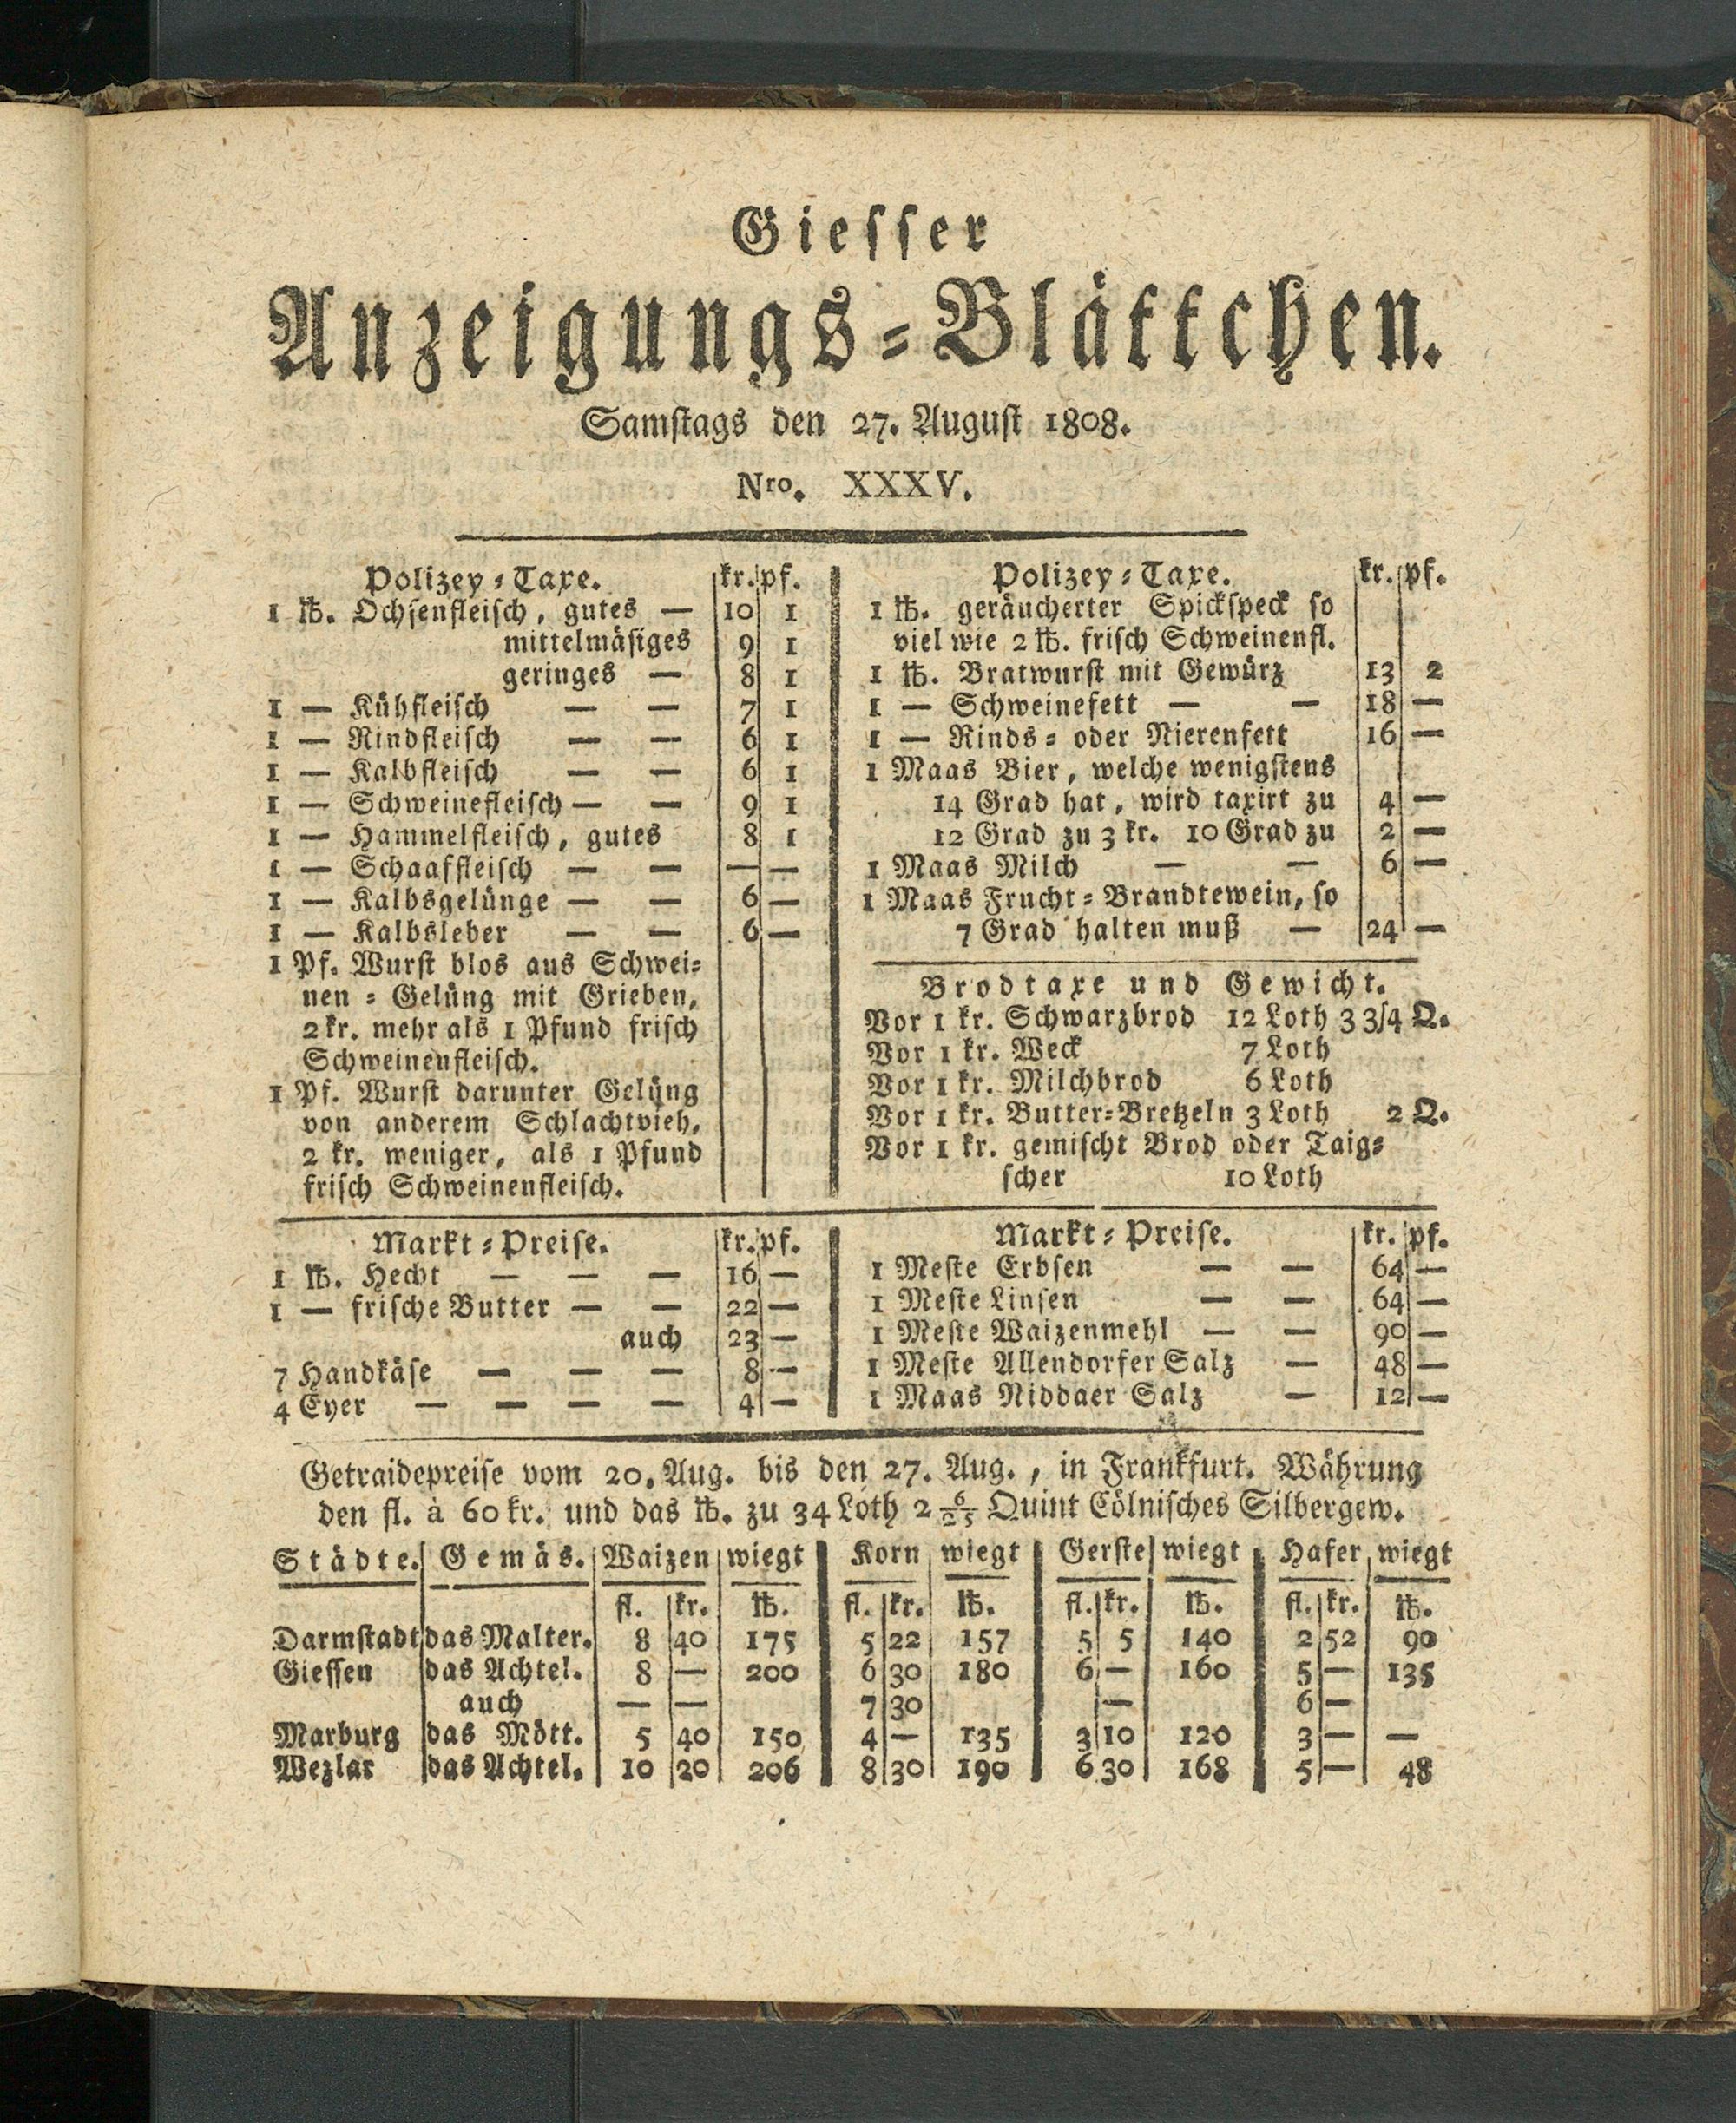 Giesser
Anzeigungs-Blättchen.
Samstags den 27. August 1808.
Nro. XXXV.
Polizey-Taxe. kr. pf.
1 ℔. Ochsenfleisch, gutes — 10 1
mittelmäsiges 9 1
geringes — 8 1
1 — Kühfleisch — — 7 1
1 — Rindfleisch — — 6 1
1 — Kalbfleisch — — 6 1
1 — Schweinefleisch — — 9 1
1 — Hammelfleisch, gutes 8 1
1 — Schaaffleisch — — — —
1 — Kalbsgelünge — — 6 —
1 — Kalbsleber — — 6 —
1 Pf. Wurst blos aus Schwei-
nen-Gelüng mit Grieben,
2 kr. mehr als 1 Pfund frisch
Schweinenfleisch.
1 Pf. Wurst darunter Gelüng
von anderem Schlachtvieh,
2 kr. weniger, als 1 Pfund
frisch Schweinenfleisch.
Polizey-Taxe. kr. pf.
1 ℔. geräucherter Spickspeck so
viel wie 2 ℔. frisch Schweinenfl.
1 ℔. Bratwurst mit Gewürz 13 2
1 — Schweinefett — — 18 —
1 — Rinds- oder Nierenfett 16 —
1 Maas Bier, welche wenigstens
14 Grad hat, wird taxirt zu 4 —
12 Grad zu 3 kr. 10 Grad zu 2 —
1 Maas Milch — — 6 —
1 Maas Frucht-Brandtewein, so
7 Grad halten muß — 24 —
Brodtaxe und Gewicht.
Vor 1 kr. Schwarzbrod 12 Loth 3 3/4 Q.
Vor 1 kr. Weck 7 Loth
Vor 1 kr. Milchbrod 6 Loth
Vor 1 kr. Butter-Bretzeln 3 Loth 2 Q.
Vor 1 kr. gemischt Brod oder Taig-
scher 10 Loth
Markt-Preise. kr. pf.
1 ℔. Hecht — — — 16 —
1 — frische Butter — — 22 —
auch 23 —
7 Handkäse — — — 8 —
4 Eyer — — — — 4 —
Markt-Preise. kr. pf.
1 Meste Erbsen — — 64 —
1 Meste Linsen — — 64 —
1 Meste Waizenmehl — — 90 —
1 Meste Allendorfer Salz — 48 —
1 Maas Niddaer Salz — 12 —
Getraidepreise vom 20. Aug. bis den 27. Aug., in Frankfurt. Währung
den fl. à 60 kr. und das ℔. zu 34 Loth 2 6/25 Quint Cölnisches Silbergew.
Städte. Gemäs. Waizen wiegt Korn wiegt Gerste wiegt Hafer wiegt
fl. kr. ℔. fl. kr. ℔. fl. kr. ℔. fl. kr. ℔.
Darmstadt das Malter. 8 40 175 5 22 157 5 5 140 2 52 90
Giessen das Achtel. 8 — 200 6 30 180 6 — 160 5 — 135
auch — — 7 30 — 6 —
Marburg das Mött. 5 40 150 4 — 135 3 10 120 3 — —
Wezlar das Achtel. 10 20 206 8 30 190 6 30 168 5 — 48